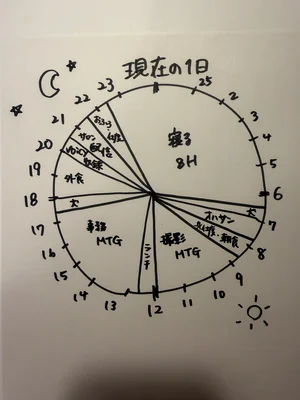 現在の1日
23
25
2
3
4
5
6
7
8
9
10
11
12
13
14
15
16
17
18
19
20
21
22
寝る
8H
犬
オハサン
支度・朝食
撮影
MTG
ランチ
事務
MTG
犬
外食
Voicy
収録
サロン
配信
おふろ